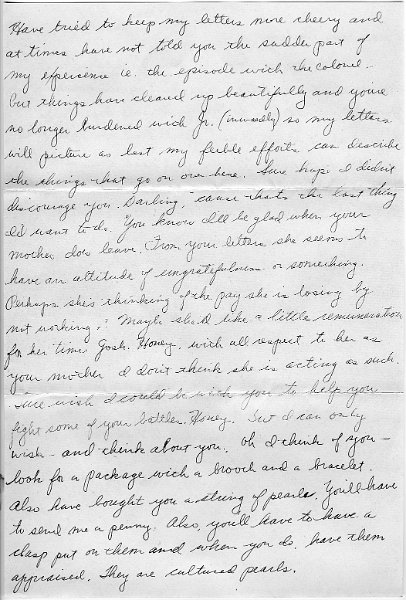 Have tried to keep my letters more cheery and
at times have not told you the sadder part of
my experience ie. the episode with the colonel.
But things have cleared up beautifully and you're
no longer burdened with Jr. (inwardly) so my letters
will picture as best my feible efforts can describe
the things that go on over here. Sure hope I didn't
discourage you, Darling, 'cause that's the last thing
I'd want to do. You know I'll be glad when your
mother does leave. From your letters she seems to
have an attitude of ungratefulness or something.
Perhaps she's thinking of the pay she is losing by
not working? Maybe she'd like a little remuneration
for her time. Gosh, Honey, with all respect to her as
your mother I don't think she is acting as such.
Sure wish I could be with you to help you
fight some of your battles, Honey. But I can only
wish - and think about you. Oh I think of you -
look for a package with a brooch and a bracelet.
Also have bought you a string of pearls. You'll have
to send me a penny. Also, you'll have to have a
clasp put on them and when you do, have them
appraised. They are cultured pearls.